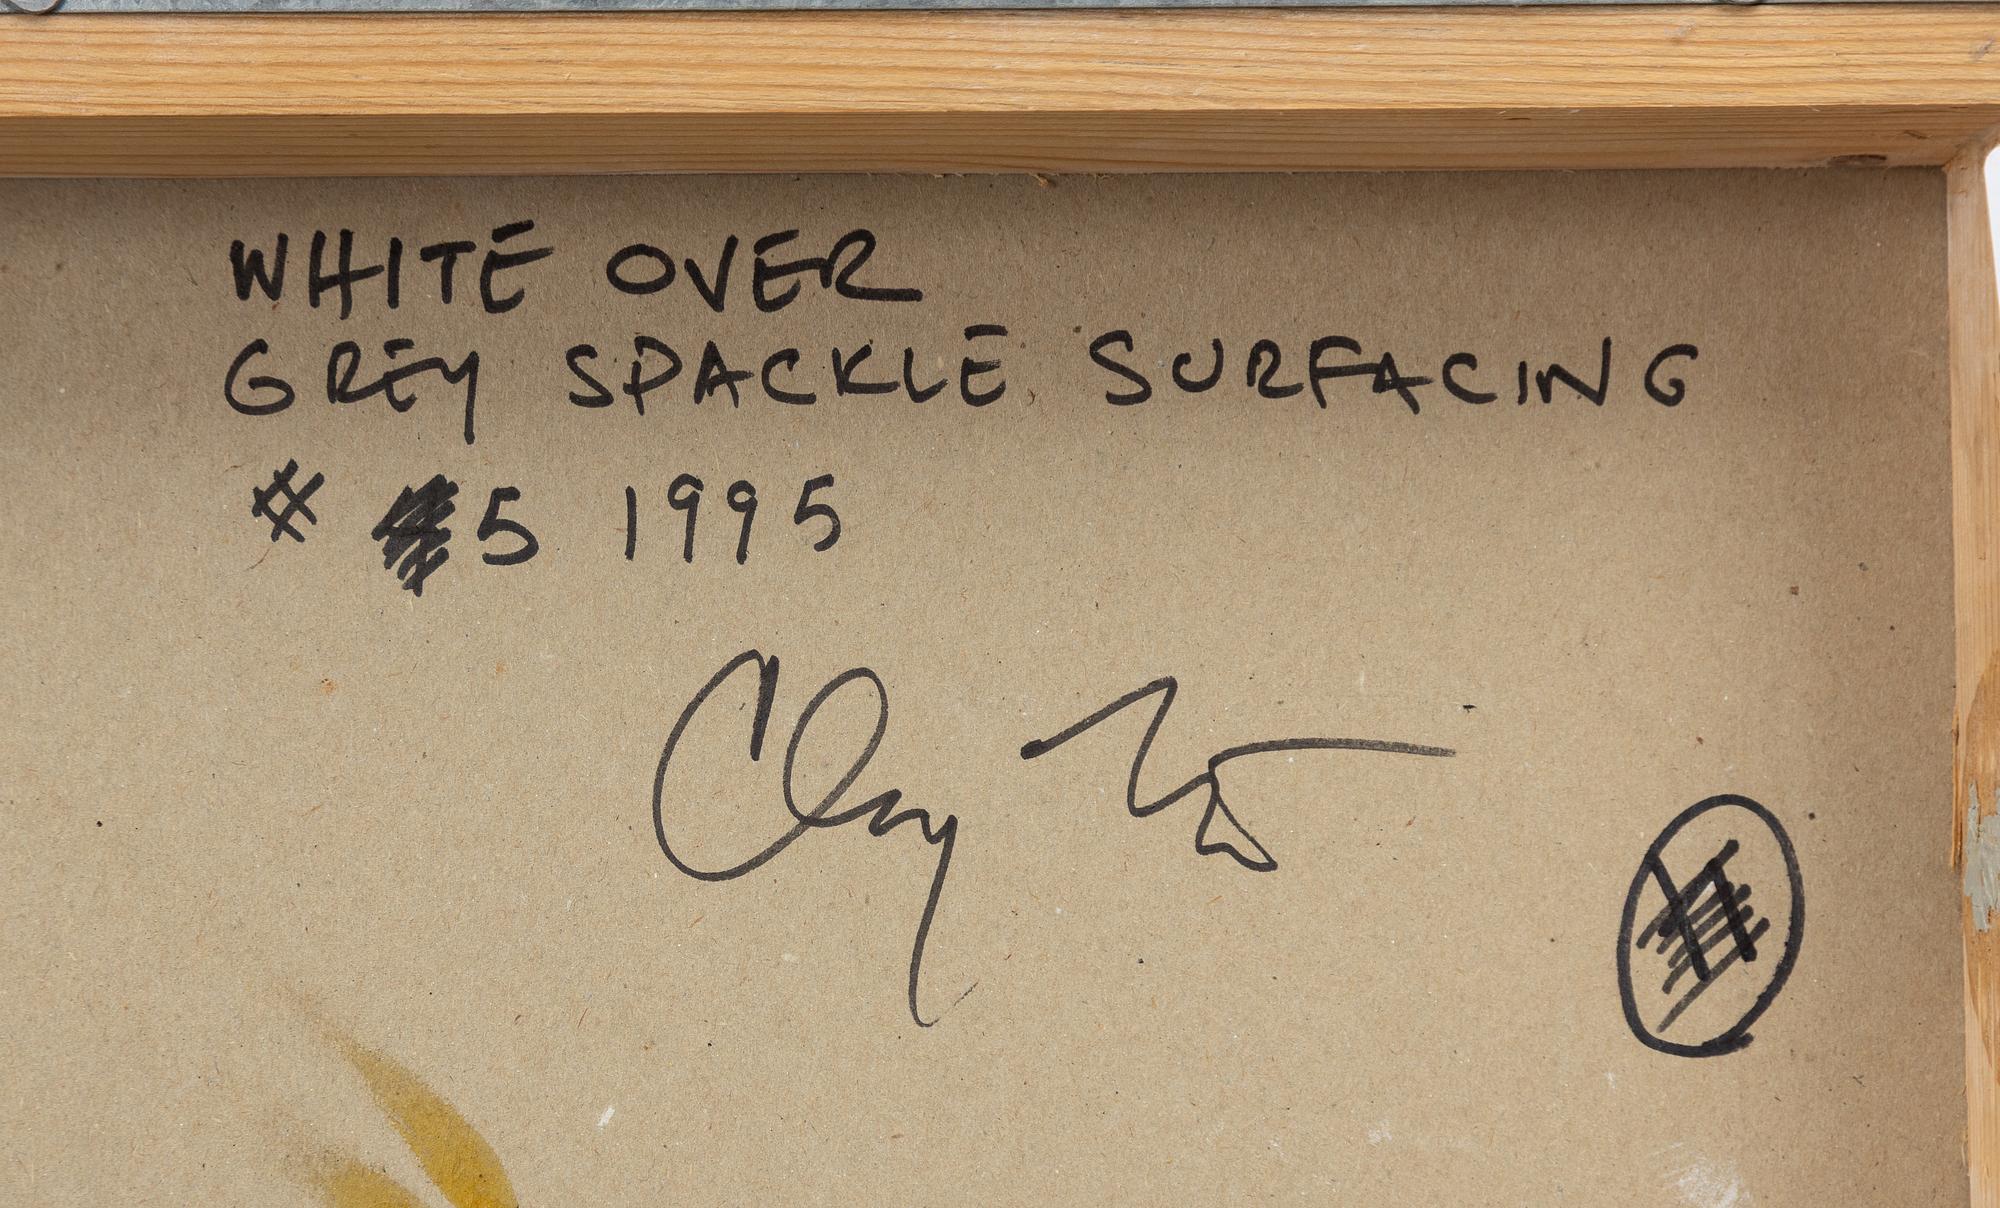 WHITE OVER
GREY SPACKLE SURFACING
# 5 1995
Clay